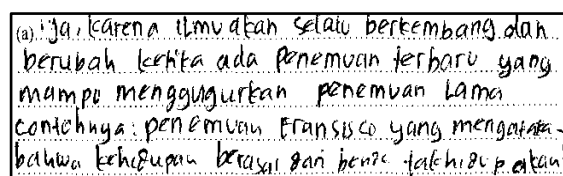 (a) iya, karena ilmu akan selalu berkembang dan
berubah ketika ada penemuan terbaru yang
mampu menggugurkan penemuan lama
contohnya: penemuan Fransisco yang mengatakan
bahwa kehidupan berasal dari benda tak hidup akan